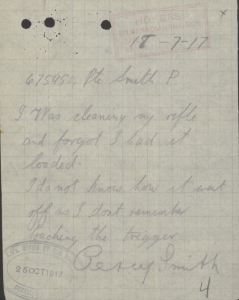 18-7-17
Pte Smith P
I Was cleaning my rifle
and forgot I had it
loaded.
I do not know how it went
off as I dont remember
touching the trigger
Percy Smith
4
25 OCT 1917